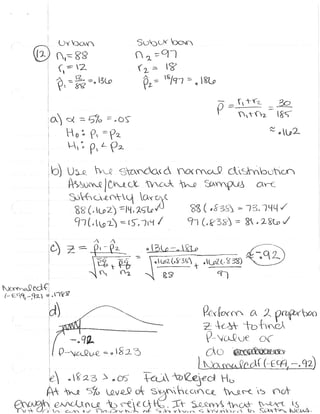 Urban Suburban
(12) n₁=88 n₂=97
r₁=12 r₂=18
p̂₁=12/88=.136 p̂₂=18/97=.186
p̄=(r₁+r₂)/(n₁+n₂)=30/185
≈.162
a) α=5%=.05
H₀: p₁=p₂
H₁: p₁<p₂
b) Use the standard normal distribution
Assume/check that the samples are
sufficiently large
88(.162)=14.256✓ 88(.838)=73.744✓
97(.162)=15.714✓ 97(.838)=81.286✓
c) z=(p̂₁-p̂₂)/√(p̄q̄/n₁+p̄q̄/n₂)=(.136-.186)/√(.162(.838)/88+.162(.838)/97)≈-.92
Normalcdf
(-E99,-.92)=.1788
d) Perform a 2 proportion
Z test to find
-.92 P-value or
P-value=.1823 do
Normalcdf(-E99,-.92)
e) .1823>.05 Fail to Reject H₀
At the 5% level of significance there is not
enough evidence to reject H₀. It seems that there is